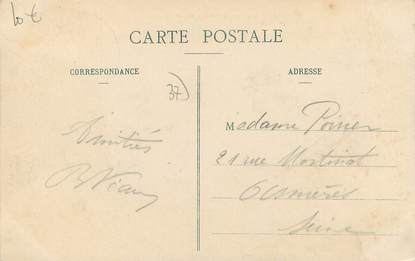 10 €
CARTE POSTALE
CORRESPONDANCE
ADRESSE
37)
Amitiés
Madame Poirier
21 rue
Asnières
Seine